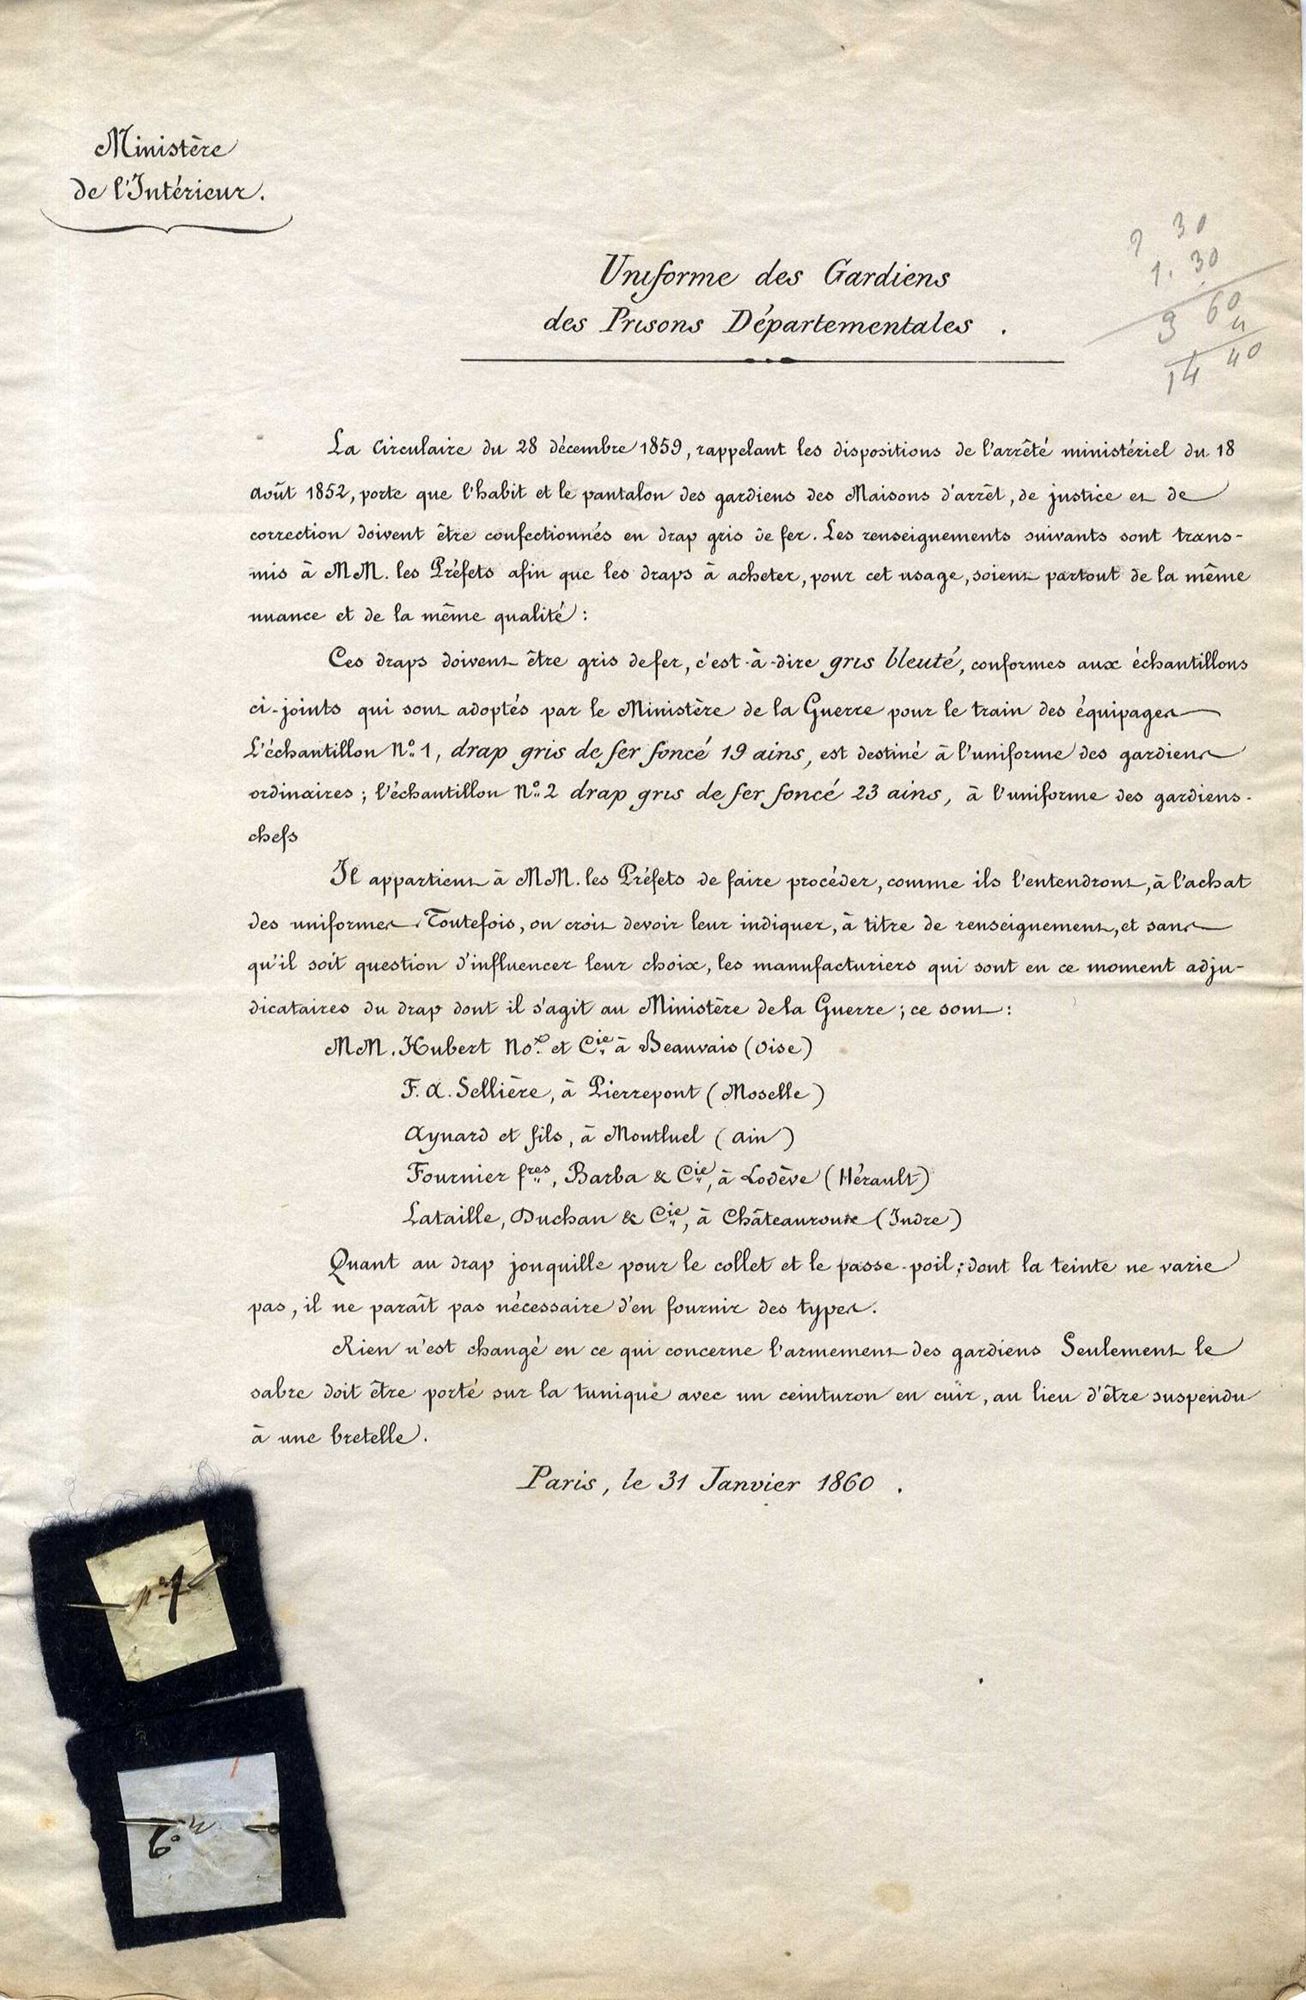 Ministère
de l'Intérieur.
Uniforme des Gardiens
des Prisons Départementales .
30
1. 30
3 60
4
14 40
La Circulaire du 28 décembre 1859, rappelant les dispositions de l'arrêté ministériel du 18
août 1852, porte que l'habit et le pantalon des gardiens des Maisons d'arrêt, de justice et de
correction doivent être confectionnés en drap gris de fer. Les renseignements suivants sont trans-
mis à MM. les Préfets afin que les draps à acheter, pour cet usage, soient partout de la même
nuance et de la même qualité :
Ces draps doivent être gris de fer, c'est-à-dire gris bleuté, conformes aux échantillons
ci-joints qui sont adoptés par le Ministère de la Guerre pour le train des équipages
L'échantillon No. 1, drap gris de fer foncé 19 ains, est destiné à l'uniforme des gardiens
ordinaires ; l'échantillon No. 2 drap gris de fer foncé 23 ains, à l'uniforme des gardiens-
chefs
Il appartient à MM. les Préfets de faire procéder, comme ils l'entendront, à l'achat
des uniformes. Toutefois, on croit devoir leur indiquer, à titre de renseignement, et sans
qu'il soit question d'influencer leur choix, les manufacturiers qui sont en ce moment adju-
dicataires du drap dont il s'agit au Ministère de la Guerre ; ce sont :
MM. Hubert No.x et Cie. à Beauvais (Oise)
F. A. Sellière, à Pierrepont (Moselle)
Aynard et fils, à Montluel (Ain)
Fournier fres, Barba & Cie, à Lodève (Hérault)
Lataille, Duchan & Cie, à Châteauroux (Indre)
Quant au drap jonquille pour le collet et le passe-poil ; dont la teinte ne varie
pas, il ne paraît pas nécessaire d'en fournir des types.
Rien n'est changé en ce qui concerne l'armement des gardiens Seulement le
sabre doit être porté sur la tunique avec un ceinturon en cuir, au lieu d'être suspendu
à une bretelle.
Paris, le 31 Janvier 1860 .
no 1
no 2